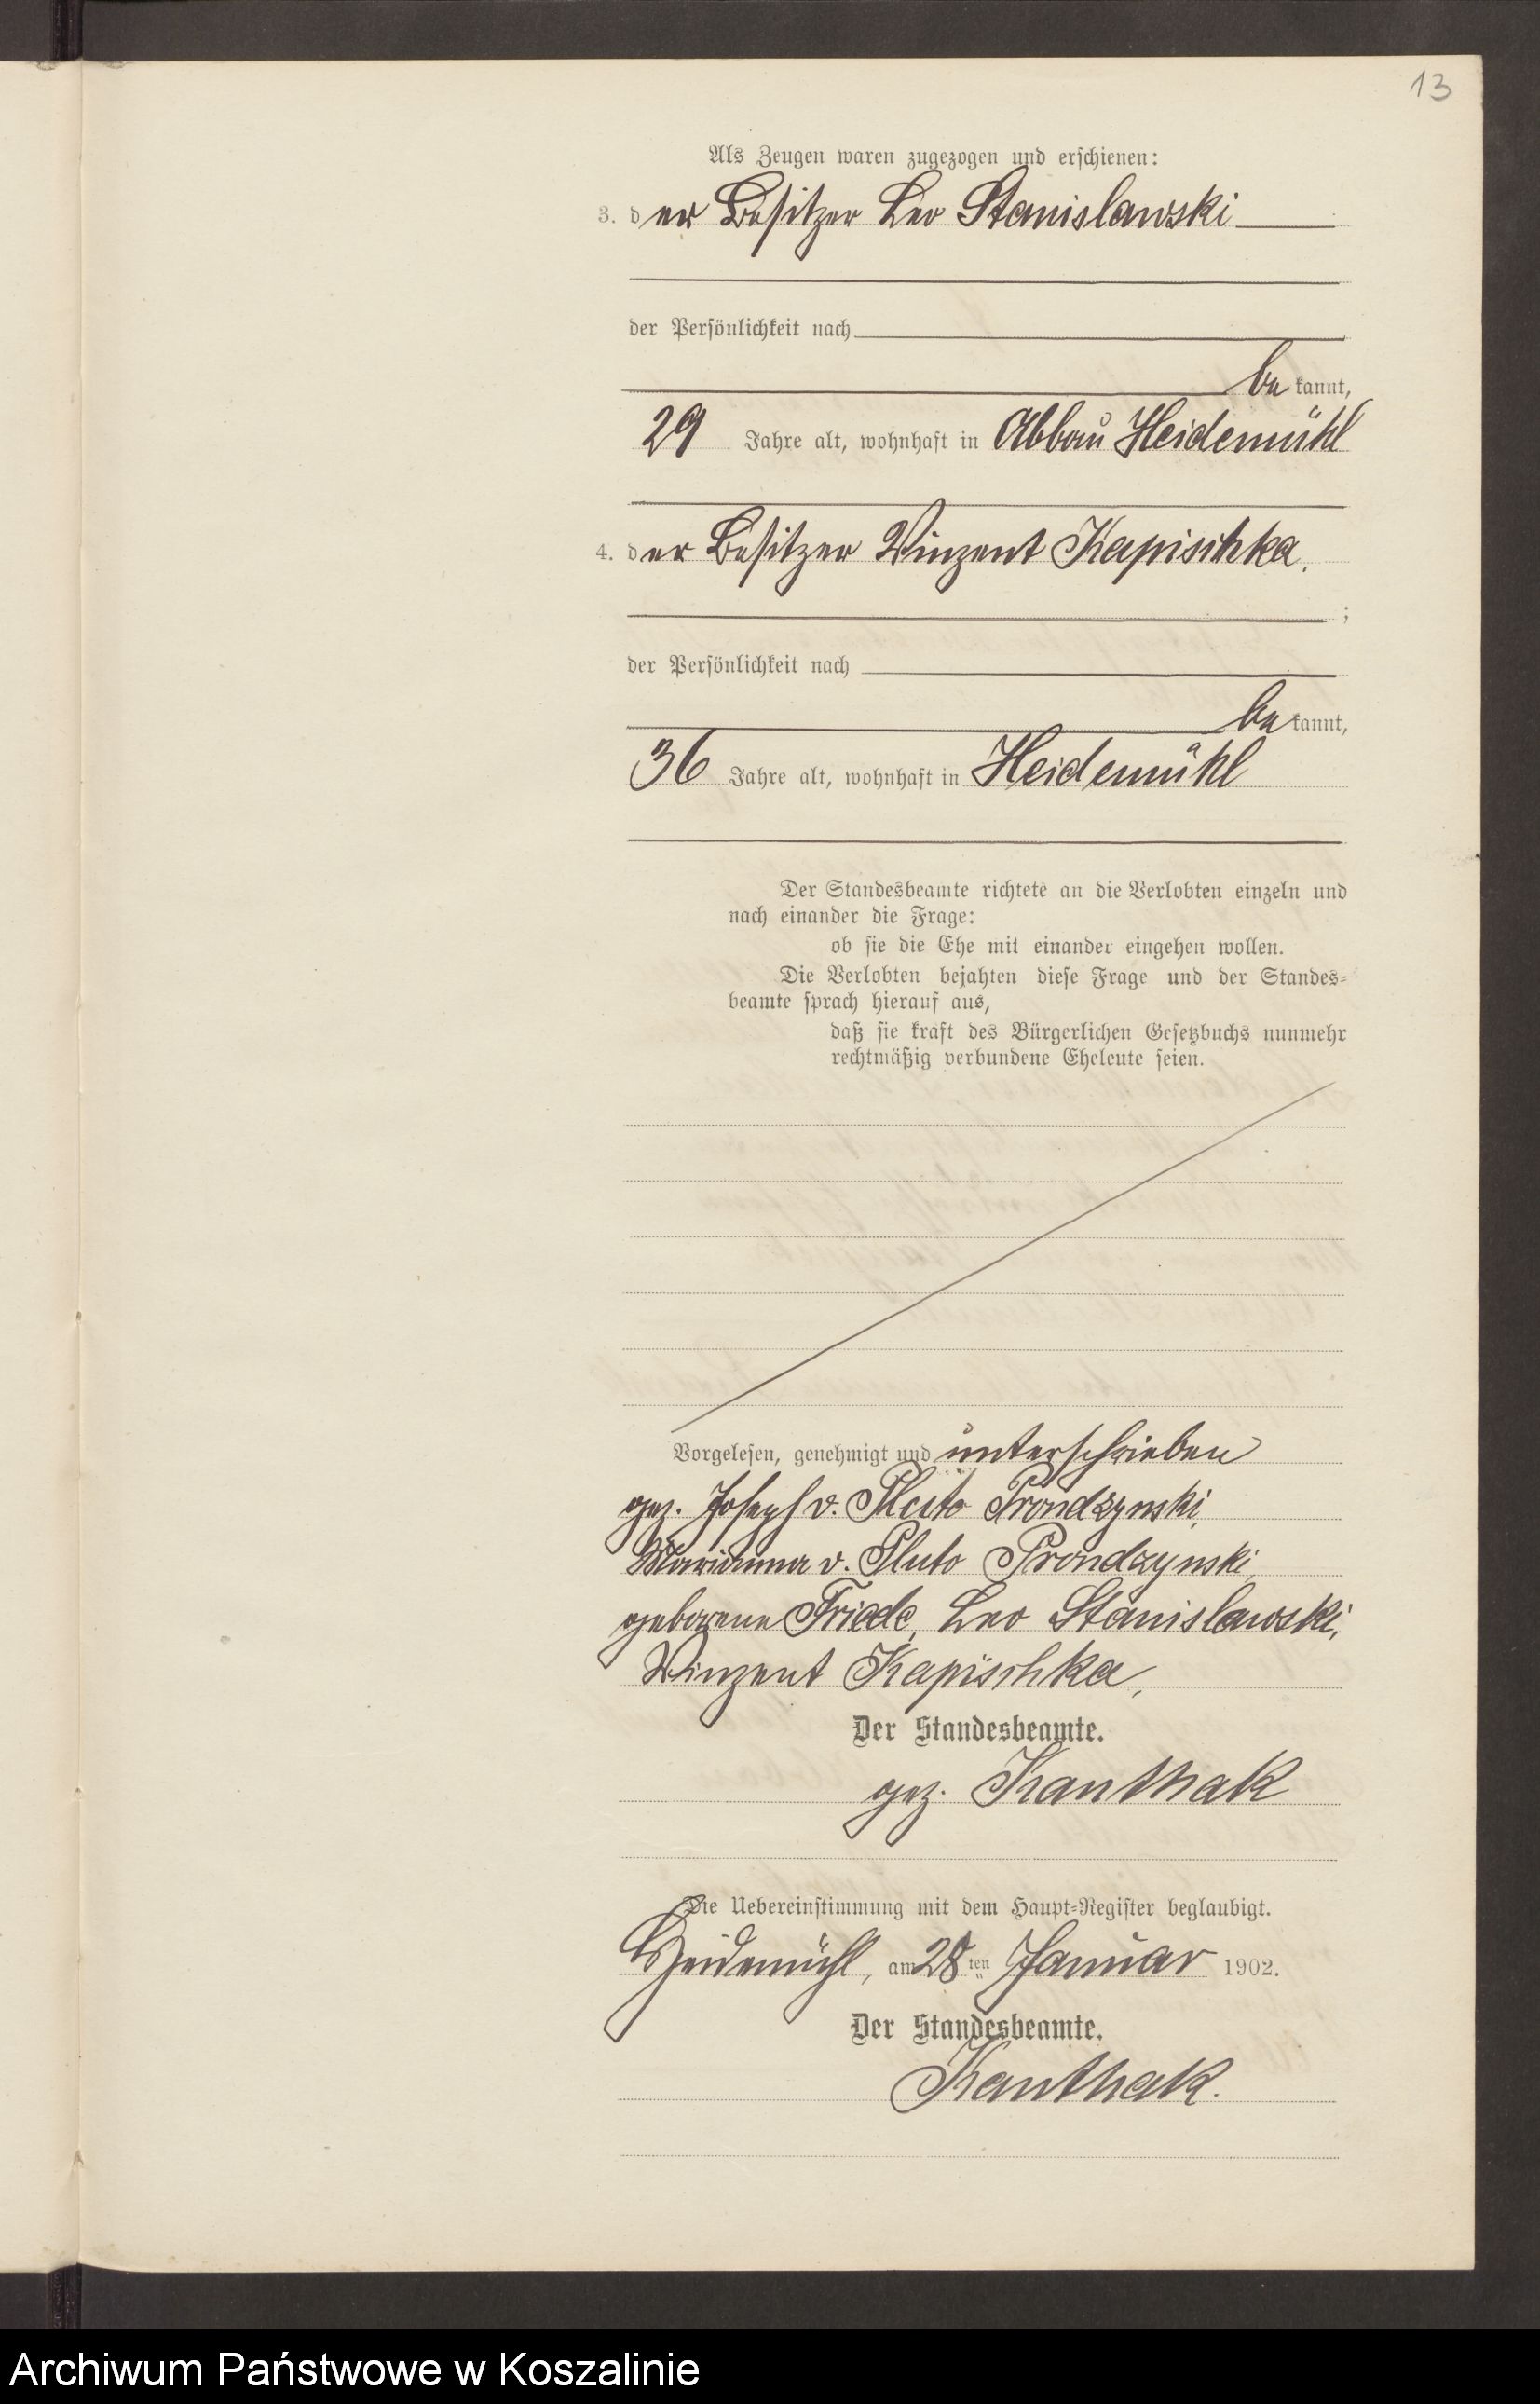 13
Als Zeugen waren zugezogen und erschienen:
3. der Besitzer Leo Stanislawski
der Persönlichkeit nach
be kannt,
29 Jahre alt, wohnhaft in Abbau Heidemühl
4. der Besitzer Vinzent Kapischka.
;
der Persönlichkeit nach
be kannt,
36 Jahre alt, wohnhaft in Heidemühl
Der Standesbeamte richtete an die Verlobten einzeln und
nach einander die Frage:
ob sie die Ehe mit einander eingehen wollen.
Die Verlobten bejahten diese Frage und der Standes-
beamte sprach hierauf aus,
daß sie kraft des Bürgerlichen Gesetzbuchs nunmehr
rechtmäßig verbundene Eheleute seien.
Vorgelesen, genehmigt und unterschrieben
gez. Joseph v. Pluto Prondzynski,
Marianna v. Pluto Prondzynski,
geborene Friede, Leo Stanislawski,
Vinzent Kapischka,
Der Standesbeamte.
gez. Kanthak
Die Uebereinstimmung mit dem Haupt-Register beglaubigt.
Heidemühl, am 28ten Januar 1902.
Der Standesbeamte.
Kanthak.
Archiwum Państwowe w Koszalinie